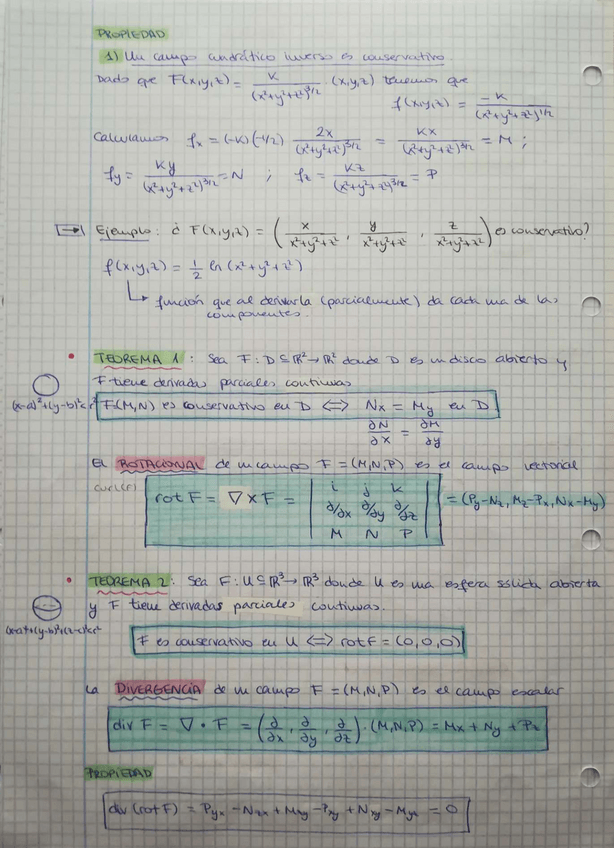 PROPIEDAD
1) Un campo cuadrático inverso es conservativo.
Dado que F(x,y,z) = K/(x²+y²+z²)^3/2 (x,y,z) tenemos que
f(x,y,z) = -K/(x²+y²+z²)^1/2
Calculamos fx = (-K)(-1/2) 2x/(x²+y²+z²)^3/2 = Kx/(x²+y²+z²)^3/2 = M ;
fy = Ky/(x²+y²+z²)^3/2 = N ; fz = Kz/(x²+y²+z²)^3/2 = P
Ejemplo: ¿ F(x,y,z) = (x/x²+y²+z², y/x²+y²+z², z/x²+y²+z²) es conservativo?
f(x,y,z) = 1/2 ln (x²+y²+z²)
función que al derivarla (parcialmente) da cada una de las
componentes.
TEOREMA 1: Sea F: D ⊆ ℝ² → ℝ² donde D es un disco abierto y
F tiene derivadas parciales continuas
(x-a)²+(y-b)²<r²
F=(M,N) es conservativo en D ⟺ Nx = My en D
∂N/∂x = ∂M/∂y
El ROTACIONAL de un campo F = (M,N,P) es el campo vectorial
curl(F)
rot F = ∇ x F = | i j k |
| ∂/∂x ∂/∂y ∂/∂z | = (Py-Nz, Mz-Px, Nx-My)
| M N P |
TEOREMA 2: Sea F: U ⊆ ℝ³ → ℝ³ donde U es una esfera sólida abierta
y F tiene derivadas parciales continuas.
(x-a)²+(y-b)²+(z-c)²<r²
F es conservativo en U ⟺ rot F = (0,0,0)
La DIVERGENCIA de un campo F = (M,N,P) es el campo escalar
div F = ∇ • F = (∂/∂x, ∂/∂y, ∂/∂z) • (M,N,P) = Mx + Ny + Pz
PROPIEDAD
div (rot F) = Pyx - Nzx + Mzy - Pxy + Nxy - Myz = 0